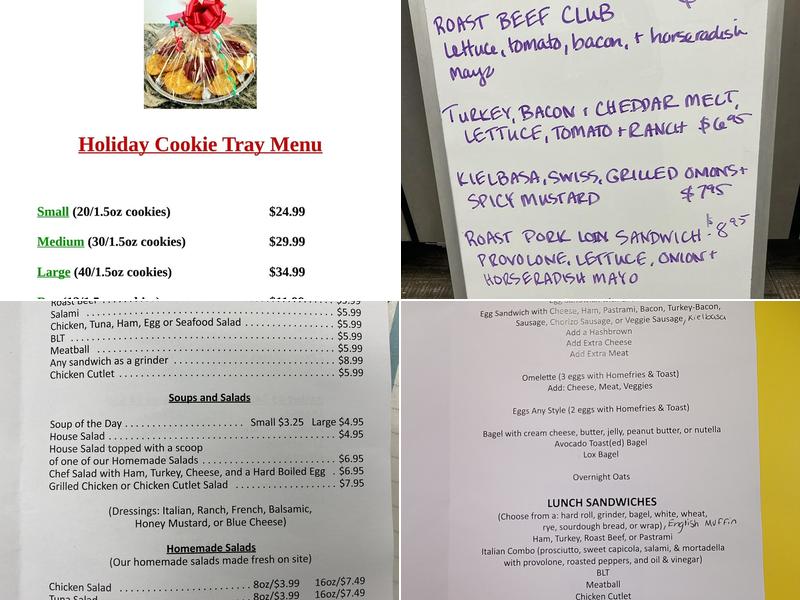 Holiday Cookie Tray Menu
Small (20/1.5oz cookies) $24.99
Medium (30/1.5oz cookies) $29.99
Large (40/1.5oz cookies) $34.99
ROAST BEEF CLUB
Lettuce, tomato, bacon, + horseradish
mayo
TURKEY, BACON + CHEDDAR MELT,
LETTUCE, TOMATO + RANCH $6.95
KIELBASA, SWISS, GRILLED ONIONS +
SPICY MUSTARD $7.95
ROAST PORK LOIN SANDWICH - $8.95
PROVOLONE, LETTUCE, ONION +
HORSERADISH MAYO
Roast Beef $5.99
Salami $5.99
Chicken, Tuna, Ham, Egg or Seafood Salad $5.99
BLT $5.99
Meatball $5.99
Any sandwich as a grinder $8.99
Chicken Cutlet $5.99
Soups and Salads
Soup of the Day Small $3.25 Large $4.95
House Salad $4.95
House Salad topped with a scoop
of one of our Homemade Salads $6.95
Chef Salad with Ham, Turkey, Cheese, and a Hard Boiled Egg . $6.95
Grilled Chicken or Chicken Cutlet Salad $7.95
(Dressings: Italian, Ranch, French, Balsamic,
Honey Mustard, or Blue Cheese)
Homemade Salads
(Our homemade salads made fresh on site)
Chicken Salad 8oz/$3.99 16oz/$7.49
Tuna Salad 8oz/$3.99 16oz/$7.49
Egg Sandwich with Cheese, Ham, Pastrami, Bacon, Turkey-Bacon,
Sausage, Chorizo Sausage, or Veggie Sausage, Kielbasa
Add a Hashbrown
Add Extra Cheese
Add Extra Meat
Omelette (3 eggs with Homefries & Toast)
Add: Cheese, Meat, Veggies
Eggs Any Style (2 eggs with Homefries & Toast)
Bagel with cream cheese, butter, jelly, peanut butter, or nutella
Avocado Toast(ed) Bagel
Lox Bagel
Overnight Oats
LUNCH SANDWICHES
(Choose from a: hard roll, grinder, bagel, white, wheat,
rye, sourdough bread, or wrap), English Muffin
Ham, Turkey, Roast Beef, or Pastrami
Italian Combo (prosciutto, sweet capicola, salami, & mortadella
with provolone, roasted peppers, and oil & vinegar)
BLT
Meatball
Chicken Cutlet